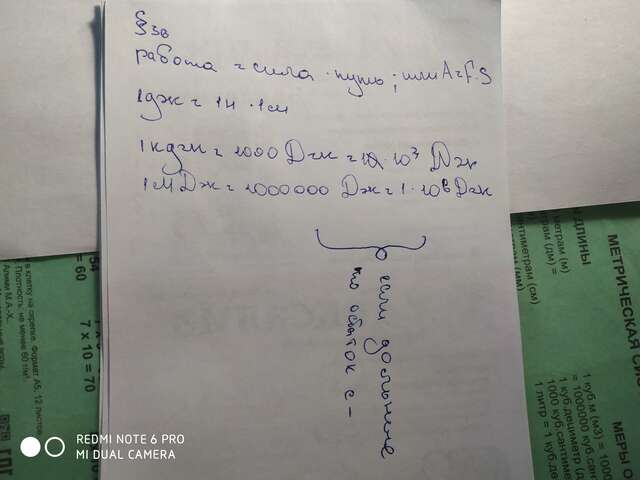 §38
работа = сила · путь; или A=F·S
1 дж = 1н · 1м
1кдж = 1000 Дж = 1 · 10³ Дж
1мДж = 1000000 Дж = 1 · 10⁶ Дж
если
то остаток с -
54
= 60
7 x 10 = 70
в клетку на скрепке. Формат А5, 12 листов
Плотность: не менее 60 г/м²
МЕТРИЧЕСКАЯ
ДЛИНЫ
метрам (м)
сантиметрам (см)
1 куб.м (м3) =
= 1000000 куб.
1 куб.дециметр
1000 куб.сантиме
1 литр = 1 куб.де
REDMI NOTE 6 PRO
MI DUAL CAMERA